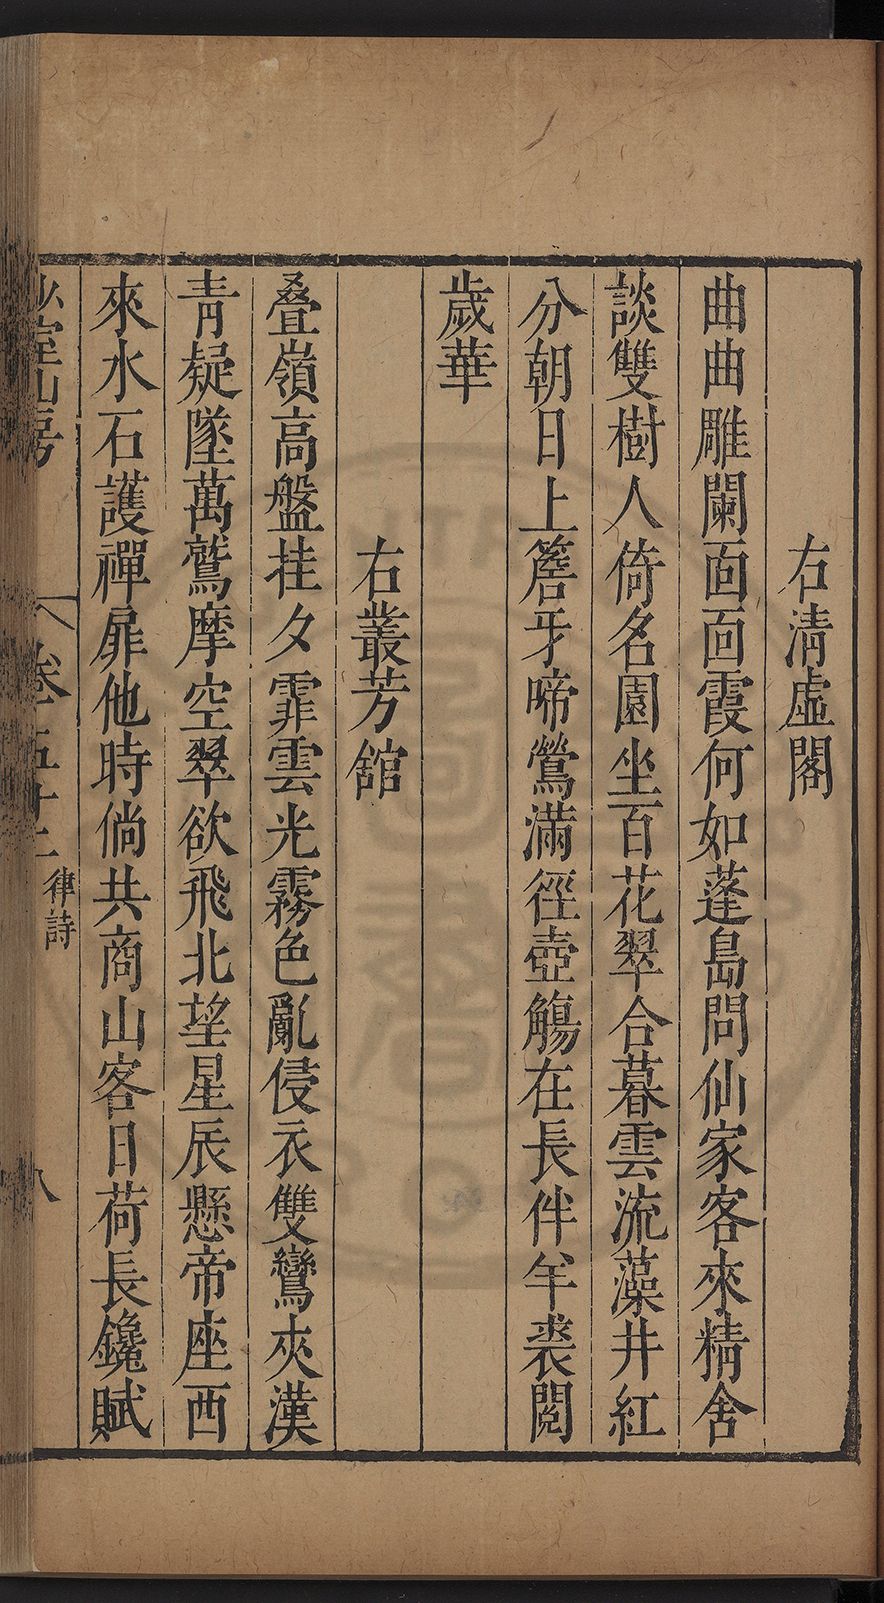 右清虛閣
曲曲雕闌面面霞何如蓬島問仙家客來精舍
談雙樹人倚名園坐百花翠合暮雲流藻井紅
分朝日上簷牙啼鶯滿徑壺觴在長伴羊裘閱
歲華
右叢芳舘
叠嶺高盤挂夕霏雲光霧色亂侵衣雙鸞夾漢
青疑墜萬鷲摩空翠欲飛北望星辰懸帝座西
來水石護禪扉他時倘共商山客日荷長鑱賦
少室山房 卷五十二 律詩 八